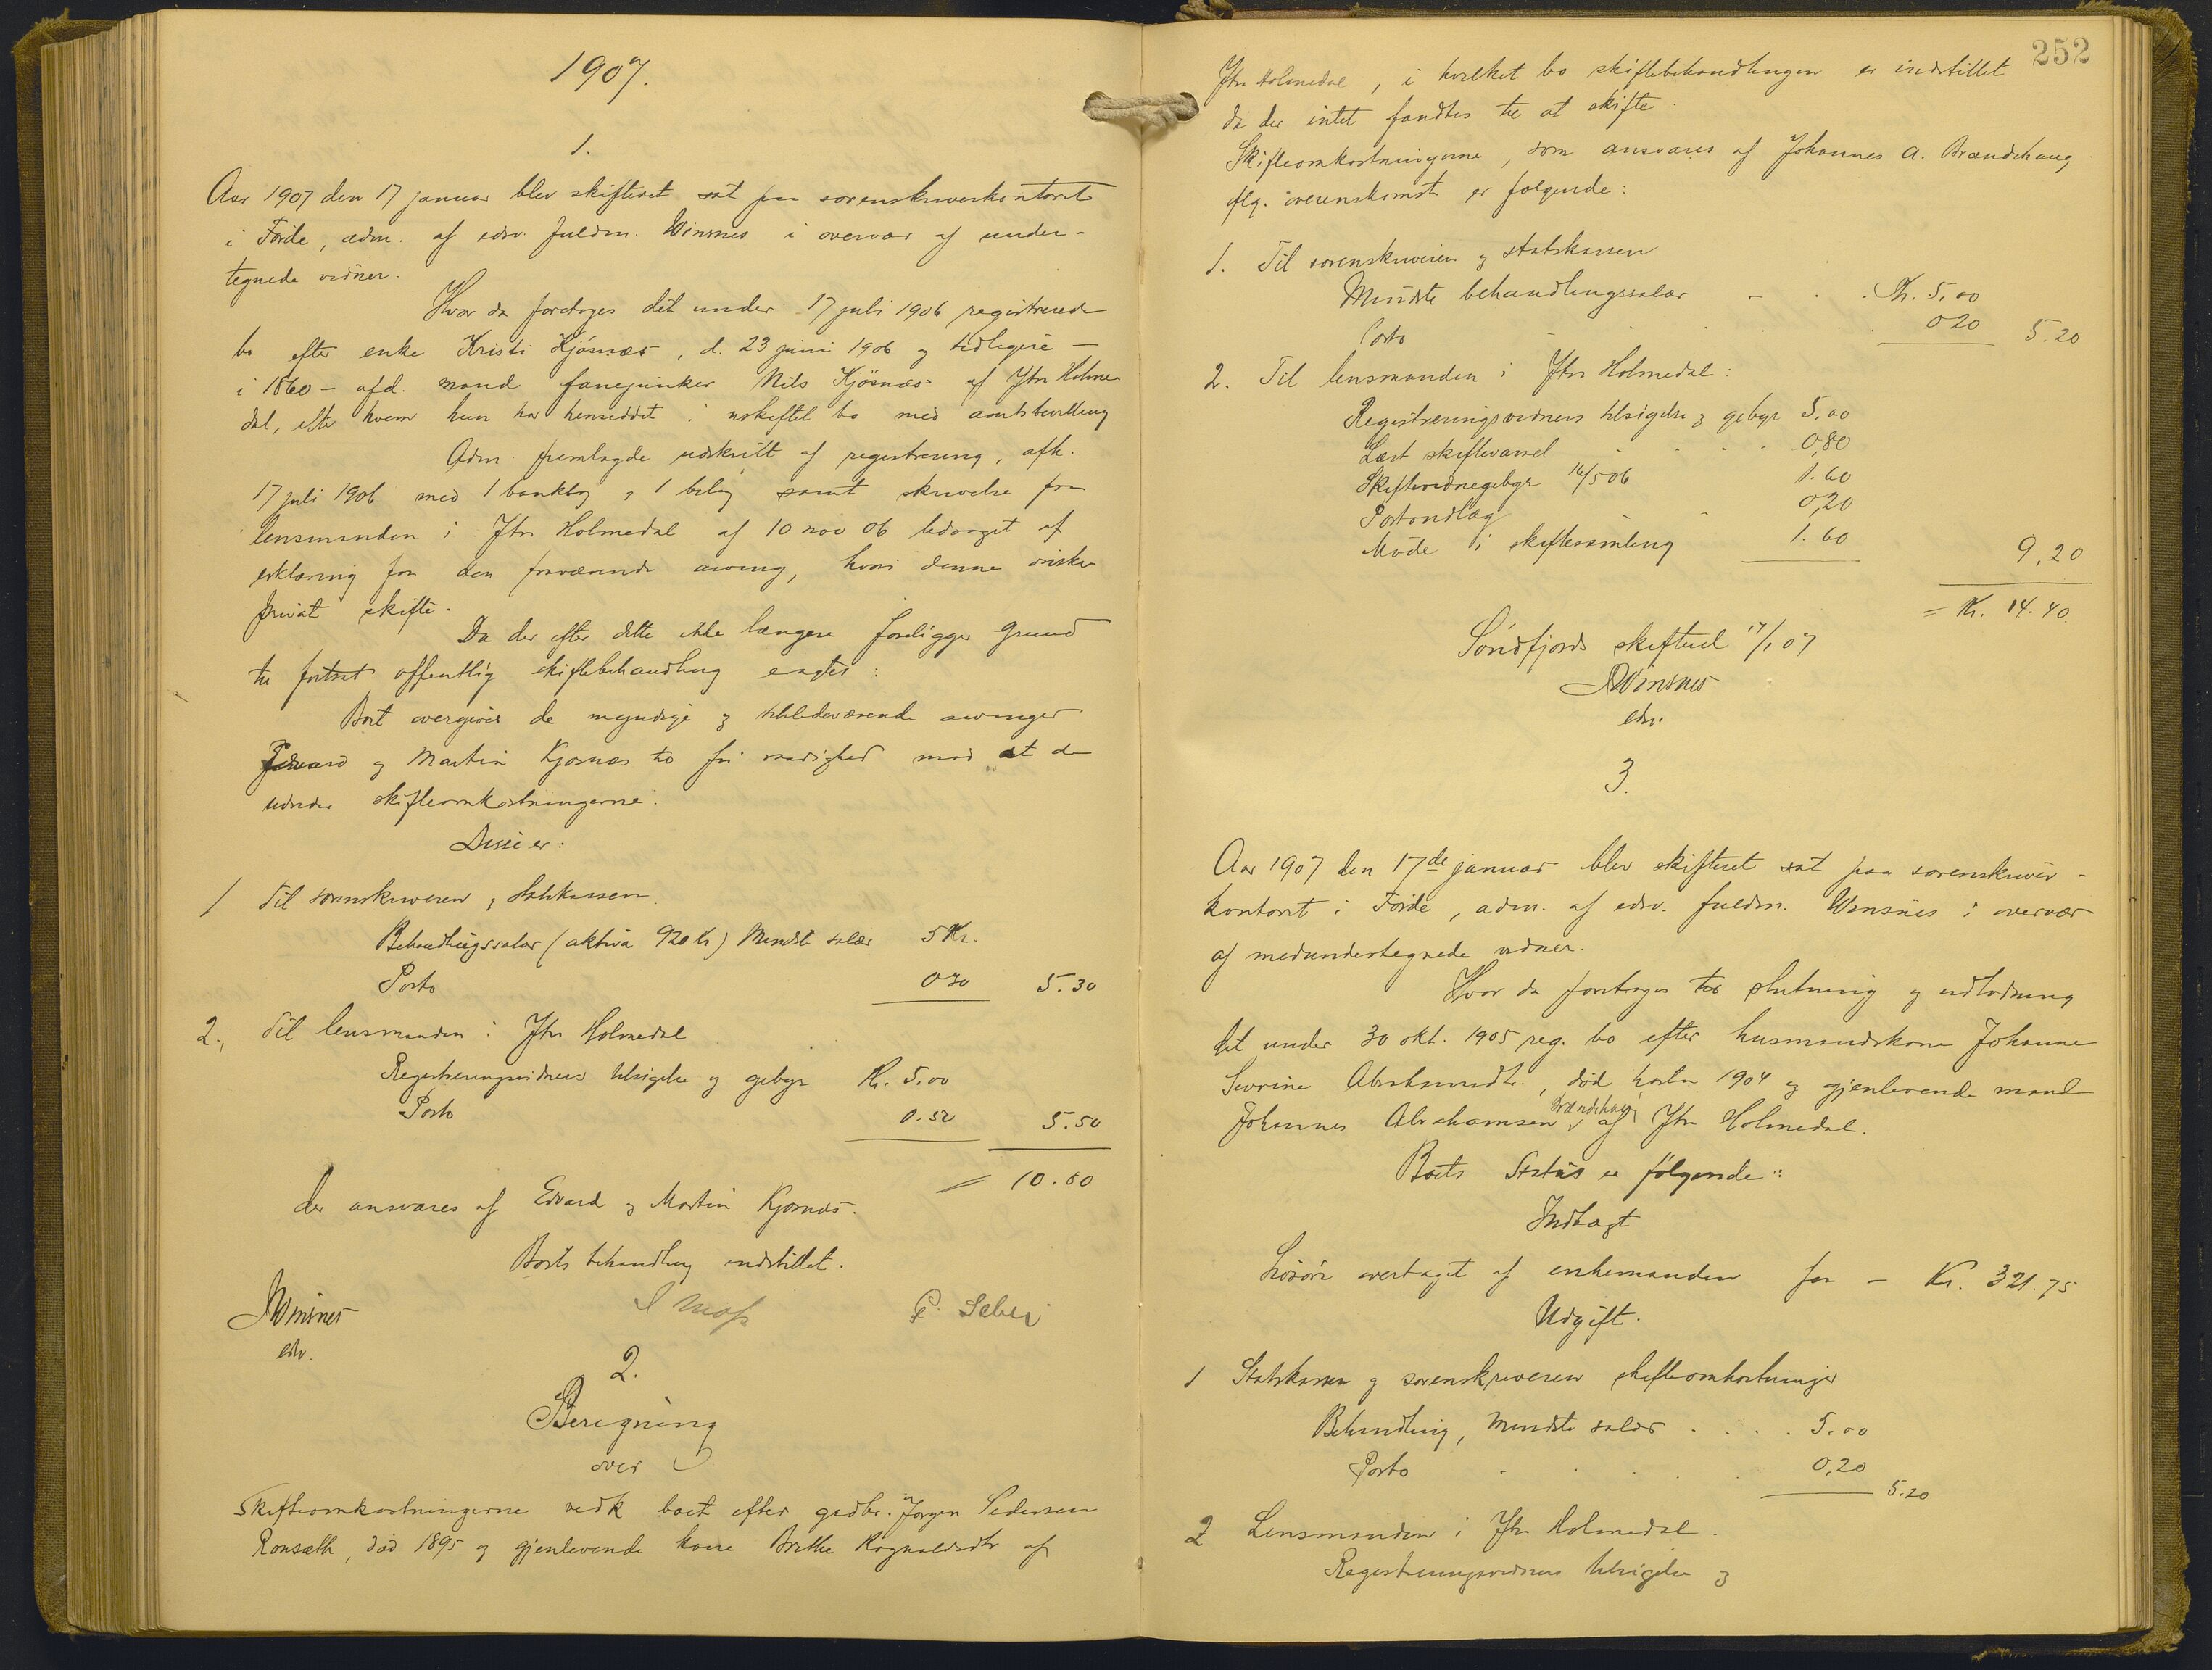 1907.
1.
Aar 1907 den 17 januar blev skifteret sat paa sorenskriverkontoret
i Førde, adm. af edsv. fuldm. Winsnes i overvær af under-
tegnede vidner.
Hvor da foretoges det under 17 juli 1906 registrerede
bo efter enke Kristi Kjösnæs, d. 23 juni 1906 og tidligere -
i 1860 - afd. mand fanejunker Nils Kjösnæs af Ytre Holme-
dal, efter hvem hun har hensiddet i uskiftet bo med amtsbevilling
Adm. fremlagde udskrift af registrering, afh.
17 juli 1906 med 1 bankbog, 1 bilag samt skrivelse fra
lensmanden i Ytre Holmedal af 10 nov 06 ledsaget af
erklæring fra den fraværende arving, hvori denne ønsker
privat skifte.
Da der efter dette ikke længere foreligger grund
til fortsat offentlig skiftebehandling eragtes:
Boet overgives de myndige og tilstedeværende arvinger
Edvard og Martin Kjosnæs til fri raadighed mod at de
udreder skifteomkostningerne.
Disse er:
1 Til sorenskriveren og statskassen
Behandlingssalær (aktiva 920 Kr) Mindste salær 5 Kr.
Porto 0 30 5.30
2., Til lensmanden i Ytre Holmedal
Registreringsvidners tilsigelse og gebyr Kr. 5.00
Porto 0.50 5.50
= 10.80
der ansvares af Edvard og Martin Kjosnæs.
Boets behandling indstillet.
Winsnes
edsv.
2.
Beregning
over
Skifteomkostningerne vedk boet efter gadbr. Jørgen Pedersen
Ronsæth, død 1895 og gjenlevende kone Brithe Ragnaldsdtr af
252
Ytre Holmedal, i hvilket bo skiftebehandlingen er indstillet
da der intet fandtes til at skifte.
Skifteomkostningerne, som ansvares af Johannes A. Brændehaug
flg. overenskomst er følgende:
1. Til sorenskriveren og statskassen
Mindste behandlingssalær - . . Kr. 5,00
Porto 0 20 5.20
2. Til lensmanden i Ytre Holmedal:
Registreringsvidners tilsigelse og gebyr 5,00
Læst skiftevarsel 0,80
Skiftevidnegebyr 16/5 06 1.60
Portoudlæg 0,20
Møde i skiftesamling 1.60 9,20
= Kr. 14.40
Söndfjords skifteret 17/1 07
Winsnes
edsv.
3.
Aar 1907 den 17de januar blev skifteret sat paa sorenskriver-
kontoret i Førde, adm. af edsv. fuldm. Winsnes i overvær
af medundertegnede vidner.
Hvor da foretoges til slutning og udlodning
det under 30 okt. 1905 reg. bo efter husmandskone Johanne
Severine Abrahamsdtr., død høsten 1904 og gjenlevende mand
Johannes Abrahamsen Brændehaug af Ytre Holmedal.
Boets Status er følgende:
Indtægt
Løsøre overtaget af enkemanden for - Kr. 321.75
Udgift.
1 Statskassen og sorenskriveren skifteomkostninger
Behandling, mindste salær . . . . 5.00
Porto 0,20
5.20
2 Lensmanden i Ytre Holmedal.
Registreringsvidners tilsigelse og